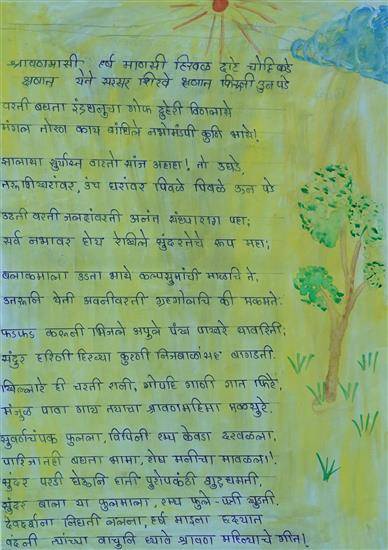 श्रावणमासी हर्ष मानसी हिरवळ दाटे चोहिकडे
क्षणात येते सरसर शिरवे क्षणात फिरुनी ऊन पडे
वरती बघता इंद्रधनुचा गोफ दुहेरी विणलासे
मंगल तोरण काय बांधिले नभोमंडपी कुणि भासे!
झालासा सुर्यास्त वाटतो सांज अहाहा! तो उघडे
तरुशिखरावर, उंच घरांवर पिवळे पिवळे ऊन पडे
उठती वरती जलदांवरती अनंत संध्याराग पहा;
सर्व नभावर होय रेखिले सुंदरतेचे रूप महा;
बलाकमाला उडता भासे कल्पसुमांची माळचि ते,
उतरूनि येती अवनीवरती ग्रहगोलचि की एकमते.
फडफड करूनी भिजले अपुले पंख पाखरे सावरिती;
सुंदर हरिणी हिरव्या कुरणी निजबाळांसह बागडती.
खिल्लारे ही चरती रानी, गोपहि गाणी गात फिरे,
मंजुळ पावा गाय तयाचा श्रावणमहिमा एकसुरे.
सुवर्णचंपक फुलला, विपिनी रम्य केवडा दरवळला,
पारिजातही बघता भामा, रोष मनीचा मावळला!
सुंदर परडी घेऊनि हाती पुरोपकंठी शुद्धमती,
सुंदर बाला या फुलमाला, रम्य फुले-पत्री खुडती.
देवदर्शना निघती ललना, हर्ष माइना हृदयात
वदनी त्यांच्या वाचुनि घ्यावे श्रावण महिन्याचे गीत!